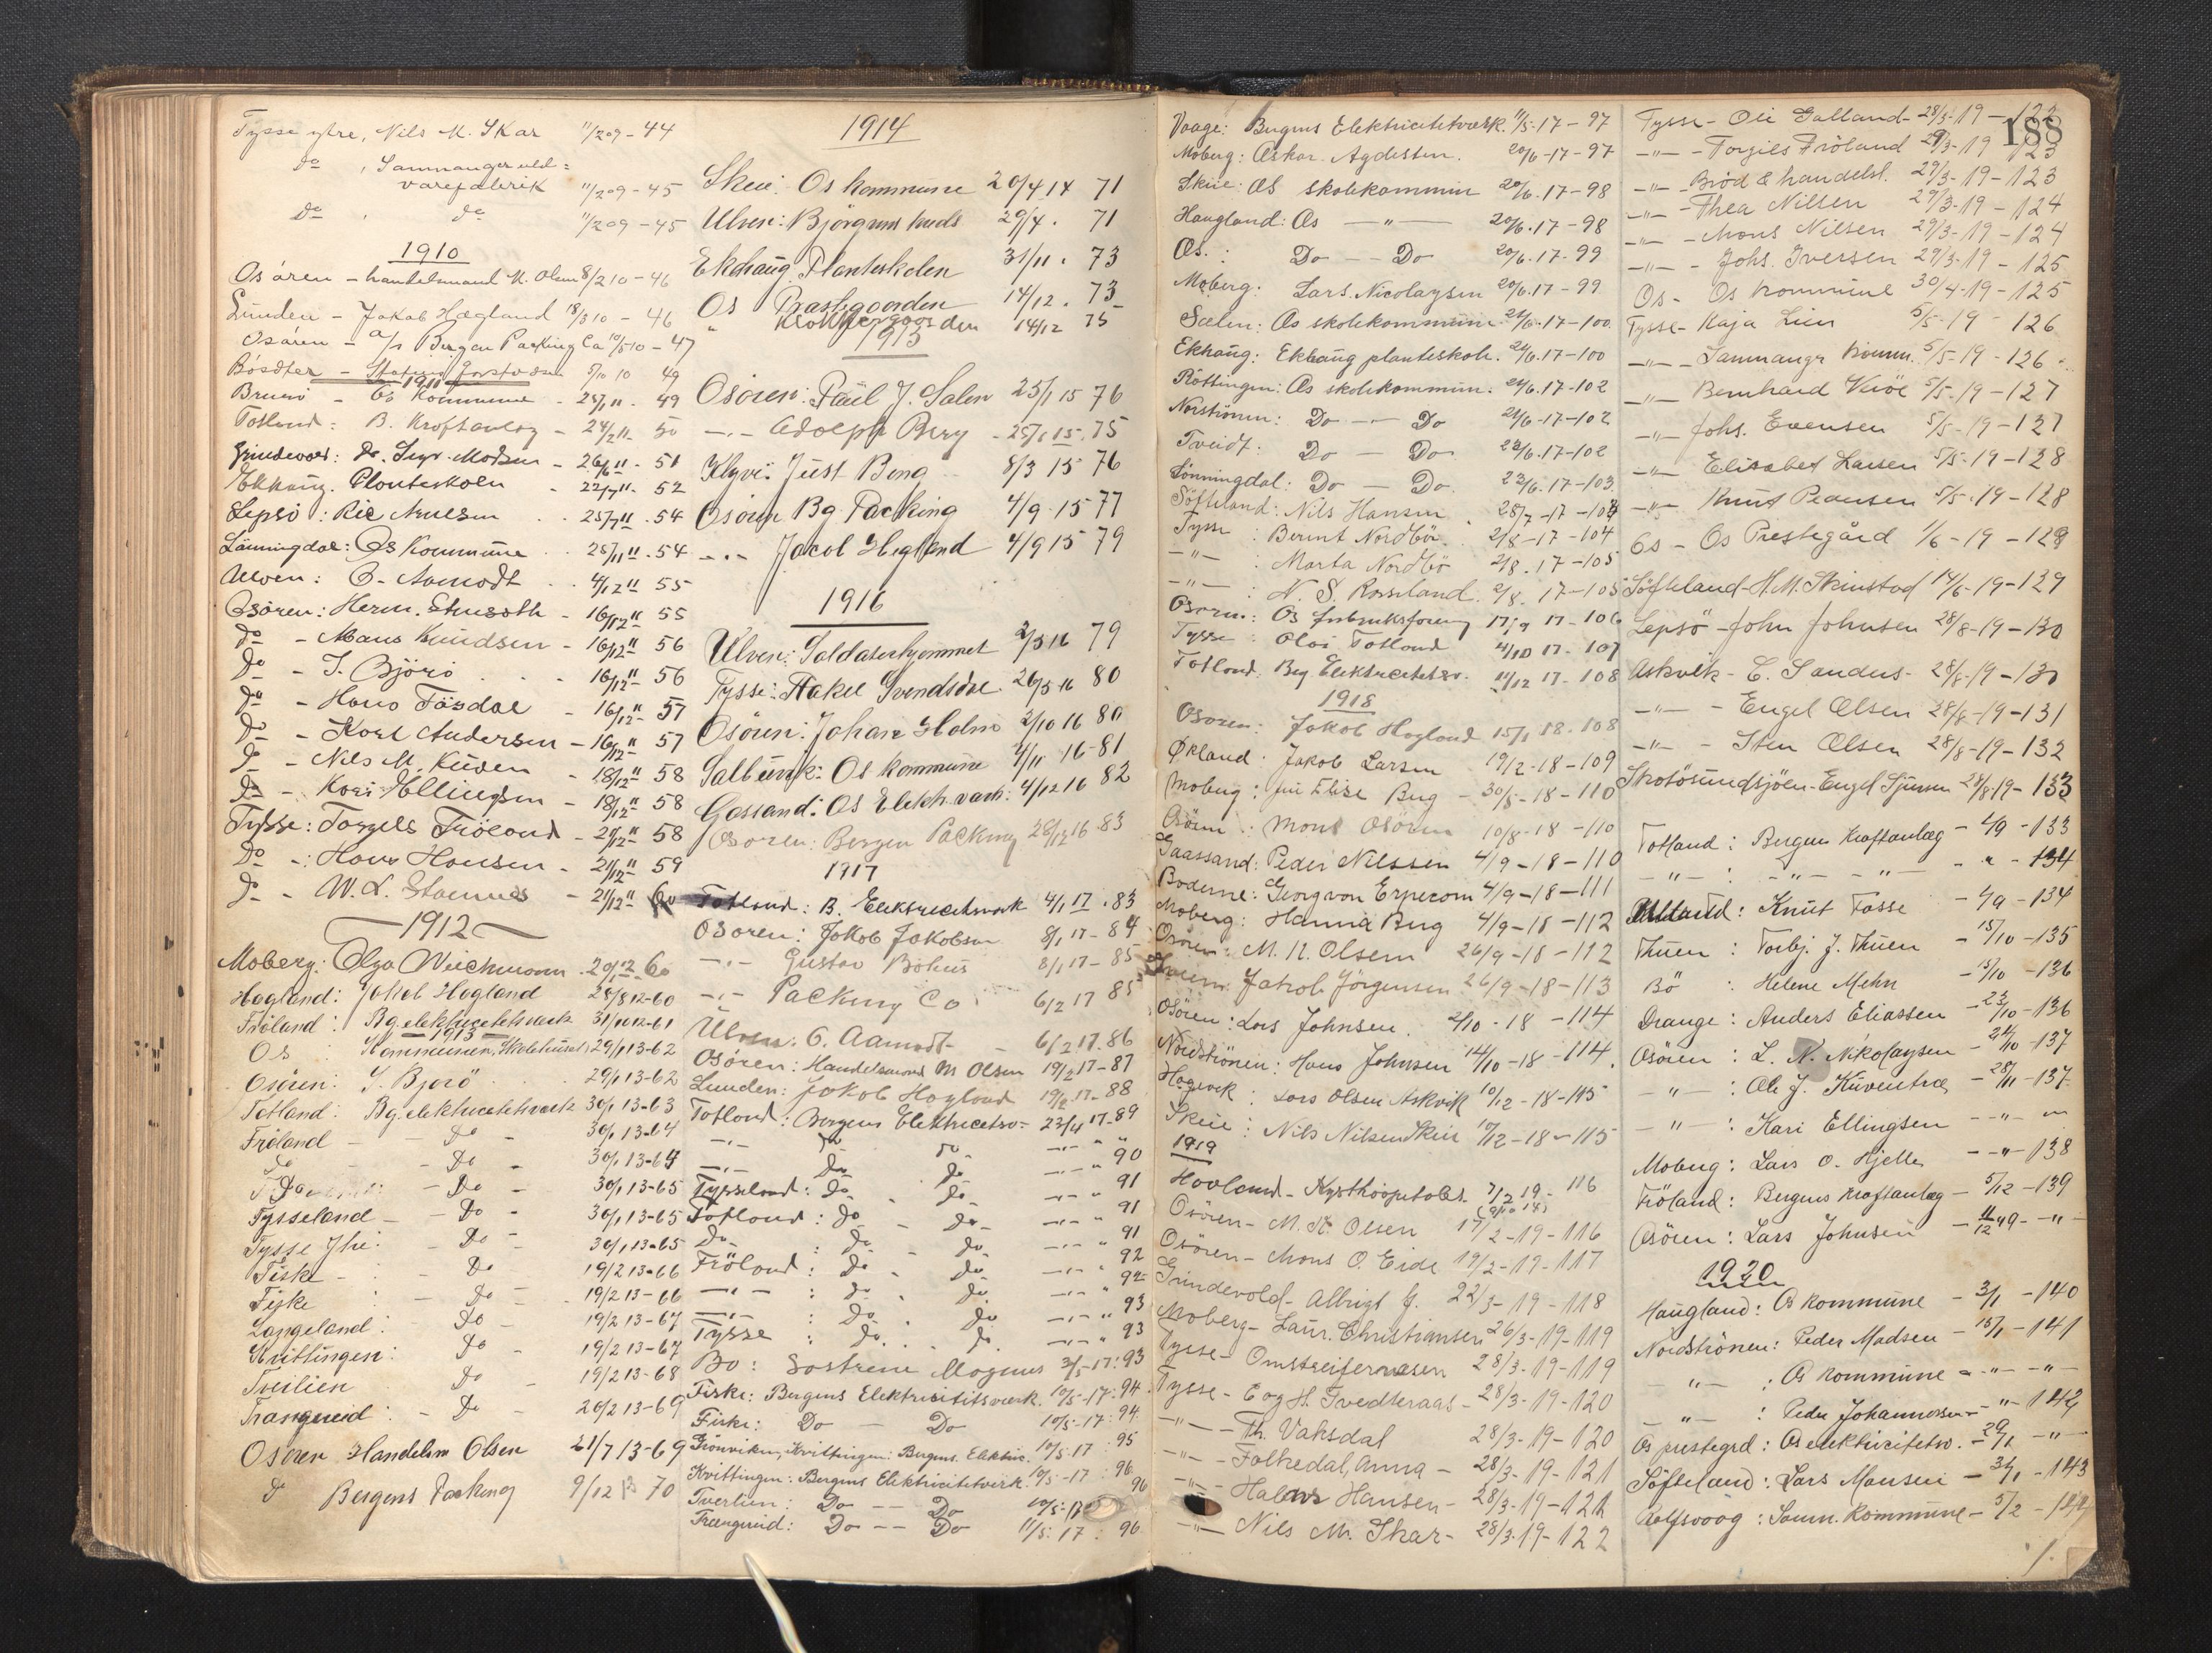 Tysse ytre, Nils M. Skar 11/2 09 - 44
do , Samnanger uld=
varefabrik 11/2 09 - 45
do , do 11/2 09 - 45
1910
Osören - handelsmand M. Olsen 8/2 10 - 46
Lunden - Jakob Hægland 18/3 10 - 46
Osören - a/s Bergen Packing Co 10/5 10 - 47
10 49
1911
- Os Kommune - 11 . 49
Totland : B. Kraftanlæg - 24/2 11 - 50
26/6 11 . 51
Ekhaug . Planteskolen - 22/7 11 . 52
Lepsö : 25/7 11 . 54
Lönningdal : Os Kommune . . 25/11 11 . 54
Ulven : O. Aamodt . . 4/12 11 55
Osören : Herm. - 16/12 11 55
do - Mans Knudsen - 16/12 11 56
do - J. Björö . . - 16/12 11 56
do - Hans - 16/12 11 57
do - Karl Andersen - 16/12 11 57
do - Nils M. - 18/12 11 58
do - Kari Ellingsen - 18/12 11 58
Tysse : Torgels Fröland - 21/12 11 58
do - : Hans Hansen - 21/12 11 59
do - W. L. - 21/12 11 60
1912
Moberg : Olga Wiechmann . 12 60
Hagland : Jakob Hagland 28/8 12 - 60
Fröland : Bg. elektricitetsværk 31/10 12 - 61
1913
Os : Kommunen, Skolehuset, 29/1 13 - 62
Osören : J. Bjorö . . . 29/1 13 - 62
Totland : Bg. elektricitetsværk 30/1 13 - 63
Fröland - - do - 30/1 13 - 64
do - - do - 30/1 13 - 64
- do - 30/1 13 - 65
Tysseland - - do - 30/1 13 - 65
Tysse - do - 30/1 13 - 65
Fiske - : - do 19/2 13 - 66
Fiske : - do - 19/2 13 - 66
Langeland : do - 19/2 13 - 67
Kvittingen : do 19/2 13 - 67
Tveilien do - 19/2 13 - 68
Trangereid : - do - 20/2 13 - 69
Osören Handelsm Olsen 21/7 13 - 69
do Bergens Packing 9/12 13 70
1914
Skeie : Os kommune 20/4 14 71
Ulven : Björgums 29/4 . 71
Ekhaug Planteskolen 31/11 . 73
Os Præstegaarden 14/12 . 73
" Klokkergaarden 14/12 75
1915
Osören : Paul J. Salen 25/1 15 76
- . - Adolph Berg - 25/1 15 . 75
: Just Beng 8/3 15 76
Osören Bg. Packing 4/9 . 15 77
- . - Jacob Hegland 4/9 15 79
1916
Ulven : Soldaterhjemmet 2/3 16 79
Tysse : Hakel Svendsdal 26/5 16 80
Osören : Johan Holm 2/10 16 80
Salbuvik : Os kommune 4/11 16 - 81
Gassand : Os Elektr. værk : 4/12 16 82
Osören : Bergen Packing 28/12 16 83
1917
Totland : B. Elektricitetsværk 4/1 17 . 83
Osören : Jakob Jakobsen 8/1 17 - 84
- . - Gustav Böhus 8/1 17 - 85
- . - Packing Co 6/2 17 85
Ulven : O. Aamodt - 6/2 17 . 86
Osören : Handelsmand M Olsen 19/2 17 - 87
Lunden : Jakob Hogland 19/2 17 - 88
Totland : Bergens Elektricetsv - 23/4 17 - 89
- . - do do - - . - " 90
- . - do do - . - " 90
Tysseland : do . do - - . - " 91
Totland : do - do - - . - " 91
do : do do - . - " 91
Fröland : do - do - . - " 92
- " - : do . do - . - " 92
- . - : do . do - . - " 93
Tysse : do . . do - . - " 93
Bö : Söstrene Magnus 3/5 - 17 : 93
Fiske : Bergens Elektricititsværk . 10/5 - 17 : 94
Fiske : Do - Do 10/5 - 17 : 94
Grönviken, Kvittingen : Bergens Elektric. 10/5 17 : 95
Kvittingen : Bergens Elektricitetverk . 10/5 - 17 : 96
Tverlien : Do - - Do 10/5 : 17 96
Trængereid : Do - - Do 11/5 : 17 : 96
Vaage : Bergens Elektricitetsværk . 11/5 - 17 - 97
Moberg : Oskar Agdesten . 20/6 - 17 - 97
Skeie : Os skolekommun 20/6 . 17 - 98
Haugland : Os - " - 20/6 . 17 - 98
Os . : Do - - Do 20/6 . 17 - 99
Moberg : Lars Nicolaysen 20/6 . 17 - 99
Sælen : Os skolekommun 21/6 - 17 - 100
Ekhaug : Ekhaug planteskole . 21/6 . 17 - 100
Röttingen : Os skolekommun . 21/6 . 17 - 102
Norströnen : Do - Do 21/6 - 17 - 102
Tveidt : Do - Do 22/6 . 17 - 102
Lönningdal : Do - Do . 22/6 . 17 - 103
Söfteland : Nils Hansen . 28/7 - 17 - 104
Tysse : Berent Nordbö . 2/8 - 17 - 104
- " - : Marta Nordbö 2/8 . 17 - 105
- " - : N. S. Rosseland . 2/8 . 17 - 105
Osören : Os forbruksforening 17/9 17 - 106
Tysse : Olai Totland 4/10 17 - 107
Totland : Beg Elektricitetsv. 11/12 17 - 108
1918
Osören : Jakob Hogland 15/1 18 . 108
Økland : Jakob Larsen 19/2 - 18 - 109
Moberg : Elise Berg - 30/5 - 18 - 110
Osören : Mons Osören 10/8 - 18 - 110
Gaassand : Peder Nilssen 4/9 - 18 - 110
Boderne : Georg von Erpecom 4/9 - 18 - 111
Moberg : Hanna Berg 4/9 - 18 - 112
Osören : M. N. Olsen 26/9 - 18 - 112
Jakob Jörgensen 26/9 - 18 - 113
Osören : Lars Johnsen . 2/10 - 18 - 114
Nordströnen : Hans Johnsen 14/10 - 18 - 114 .
Hagevik : Lars Olsen Askvik 10/12 - 18 - 115
Skeie : Nils Nilsen Skeie 10/12 - 18 - 115
1919
Hovland - Kysthospitalet 7/2 19 - 116
Osören - M. N. Olsen 17/2 - 19 - 116
Osören - Mons O. Eide 19/2 - 19 - 117
Grindevold - Albrigt G. 22/3 - 19 - 118
Moberg - Laur. Christiansen 26/3 - 19 - 119
Tysse - Omstreifervæsen 28/3 - 19 - 119
Tysse - E og H. Tvedteraas - 28/3 - 19 - 120
- " - - Th. Vaksdal 28/3 - 19 - 120
- " - - Falkedal, Anna - 28/3 - 19 - 121
- " - - Hansen - 28/3 - 19 - 121
- " - Nils M. Skar - 28/3 - 19 - 122
188
Tysse - Oli Galland - 28/3 - 19 - 122
- " - - Torgils Fröland 29/3 - 19 123
- " - - Bröd & handelsl. 29/3 - 19 - 123
- " - - Thea Nilsen 29/3 - 19 - 124
- " - - Mons Nilsen 29/3 - 19 - 124
- " - - Johs. Iversen 29/3 - 19 - 125
Os - Os kommune 30/4 - 19 - 125
Tysse - Kaja Lien 5/5 - 19 - 126
- " - - Samnanger komm. 5/5 - 19 - 126
- " - Bernhard 5/5 - 19 - 127
- " - Johs. Evensen 5/5 - 19 - 127
- " - Elisabet Larsen 5/5 - 19 - 128
- " - Knut Pedersen 5/5 - 19 - 128
Os - Os Prestegård 1/6 - 19 - 129
Söfteland - H. M. Skinstad 14/6 - 19 - 129
Lepsö - John Johnsen 28/8 - 19 - 130
Askvik - E. Sanders - 28/8 - 19 - 130
- " - - Engel Olsen 28/8 - 19 - 131
- " - - Sten Olsen 28/8 - 19 - 132
Skotösundsjöen - Engel Sjursen 28/8 19 - 133
Totland : Bergens Kraftanlæg - 4/9 - 133
- " - : - " - - " - - " - 134
: Knut Fosse - 4/9 - 134
Thuen : Torbj. J. Thuen - 15/10 - 135
Bö : Helene Mehn - 15/10 - 136
Drange : Anders Eliassen - 23/10 - 136
Osören : L. N. Nikolaysen - 24/10 - 137
- " - : Ole J. Kuventræ - 28/11 - 137
- " - : Kari Ellingsen - - " - "
Moberg : Lars O. Hjelle - - " - 138
Fröland : Bergens Kraftanlæg - 5/12 - 139
Osören : Lars Johnsen - 11/12 19 - - " -
1920
Haugland : Os kommune - 3/1 - 140
Nordströnen : Peder Madsen - 15/1 - 141
- " - : Os kommune - - " - - " -
- " - : Peder Johannessen - - " - 142
Os prestegrd : Os elektricitetsv. - 29/1 - " -
Söfteland : Lars Monsen - 31/1 - 143
Rolfsvaag : Samn. kommune - 5/2 - 144